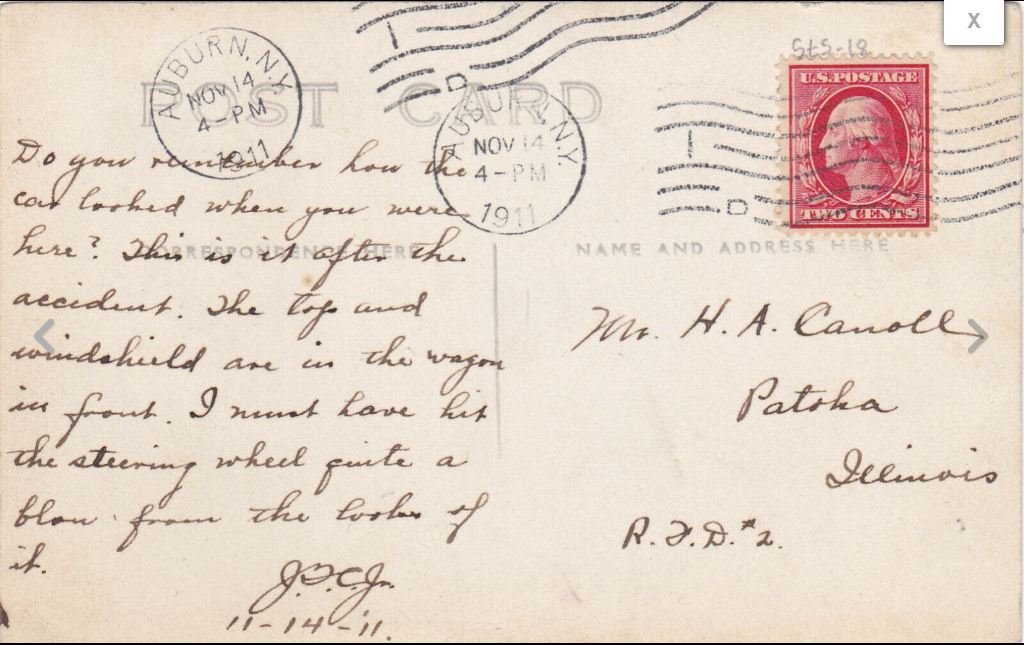 X
StS-18
U.S. POSTAGE
TWO CENTS
AUBURN, N.Y.
NOV 14
4-PM
1911
D
AUBURN, N.Y.
NOV 14
4-PM
1911
D
POST CARD
CORRESPONDENCE HERE
NAME AND ADDRESS HERE
Do you remember how the
car looked when you were
here? This is it after the
accident. The top and
windshield are in the wagon
in front. I must have hit
the steering wheel quite a
blow from the looks of
it.
J.F.C. Jr.
11-14-'11.
Mr. H. A. Carroll
Patoka
Illinois
R.F.D. #2.